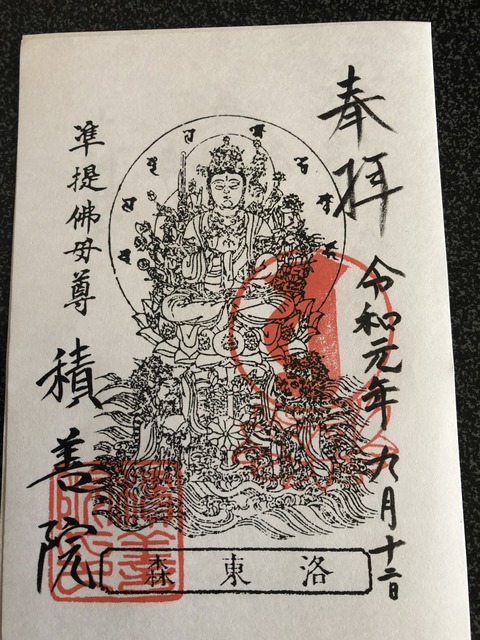 奉拝
令和元年九月十二日
準提佛母尊
積善院
洛東森